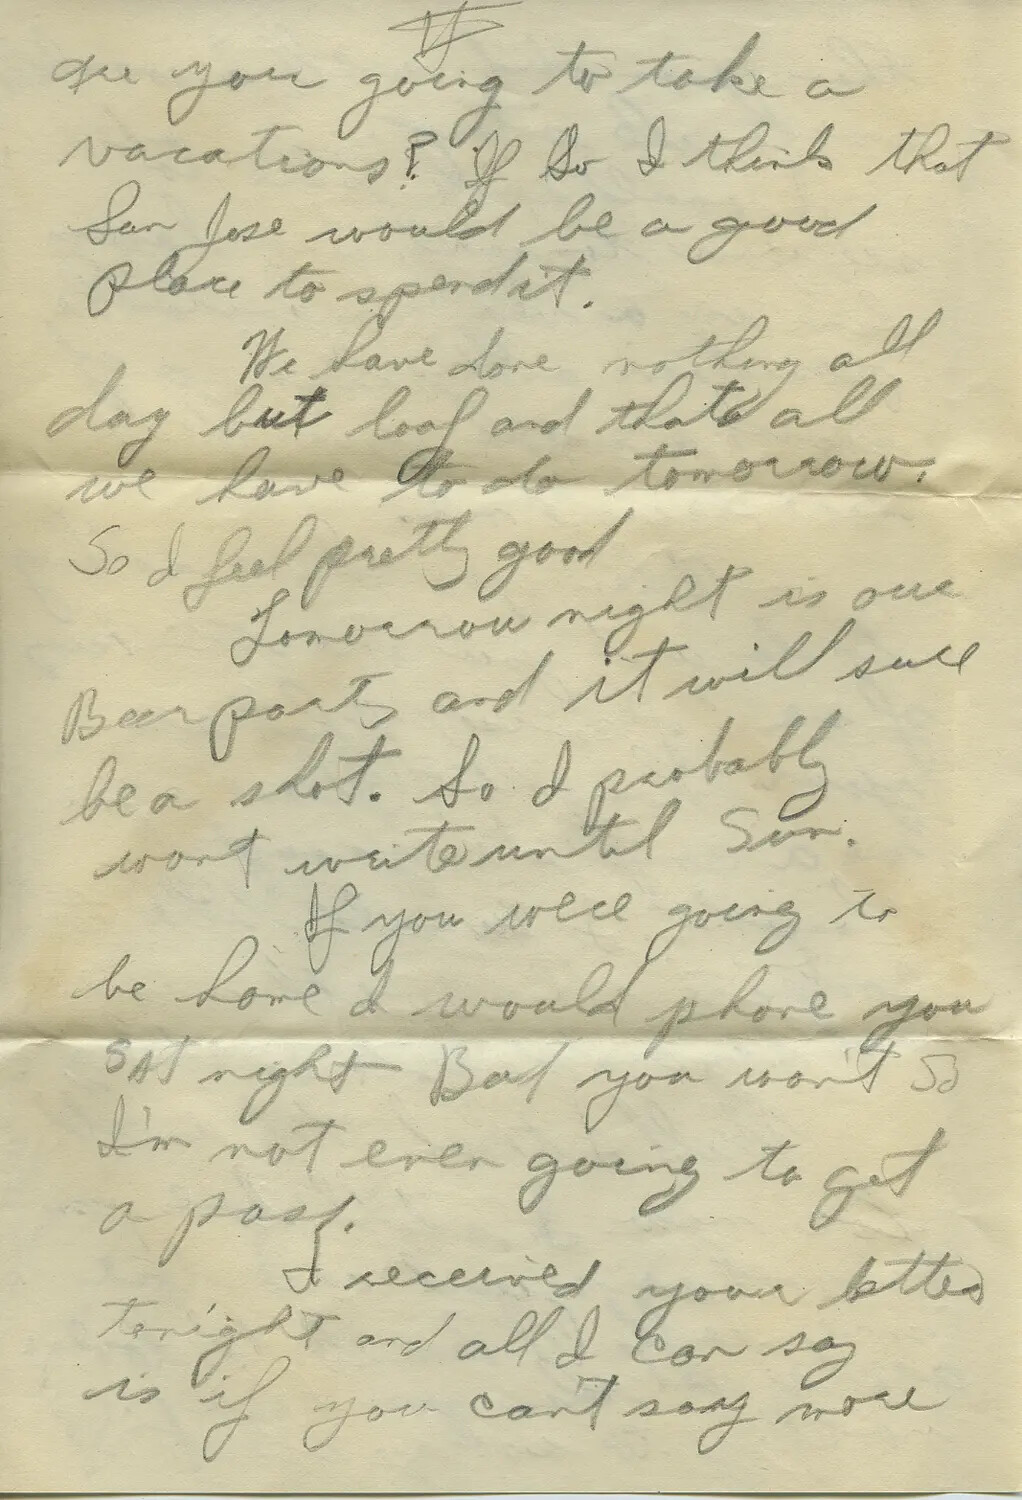 II
Are you going to take a
vacations? If So I think that
San Jose would be a good
place to spend it.
We have done nothing all
day but loaf and thats all
we have to do tomorrow.
So I feel pretty good
Tomorrow night is our
Beer party and it will sure
be a shot. So I probably
wont write until Sun.
If you were going to
be home I would phone you
SAT night But you won't So
I'm not even going to get
a pass.
I received your letter
tonight and all I can say
is if you can't say more